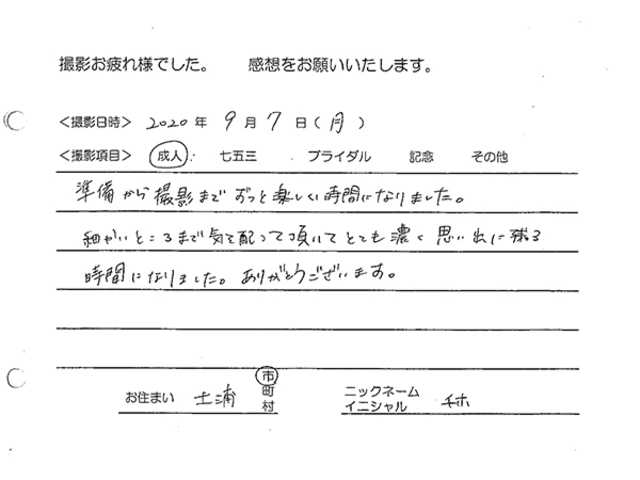 撮影お疲れ様でした。 感想をお願いいたします。
<撮影日時> 2020年 9月 7日(月)
<撮影項目> 成人 七五三 ブライダル 記念 その他
準備から撮影までずっと楽しい時間になりました。
細かいところまで気を配って頂いてとても濃く思い出に残る
時間になりました。ありがとうございます。
お住まい 土浦 市町村 ニックネーム イニシャル チホ